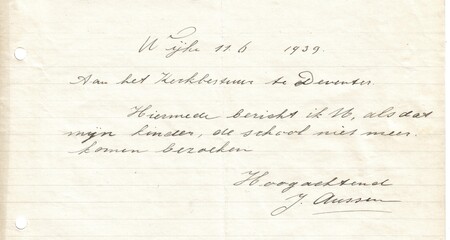 Wijhe 11.6 1939.
Aan het Kerkbestuur te Deventer.
Hiermede bericht ik U, als dat
mijn kinder, de school niet meer.
komen bezoeken
Hoogachtend
J. Aussen